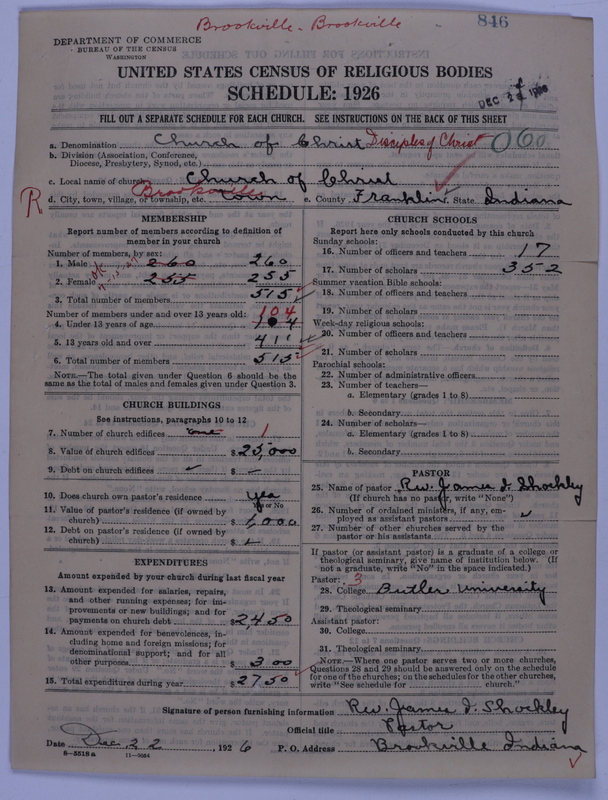 Brookville - Brookville
846
DEPARTMENT OF COMMERCE
BUREAU OF THE CENSUS
WASHINGTON
UNITED STATES CENSUS OF RELIGIOUS BODIES
SCHEDULE: 1926
DEC
FILL OUT A SEPARATE SCHEDULE FOR EACH CHURCH. SEE INSTRUCTIONS ON THE BACK OF THIS SHEET
a. Denomination Church of Christ Disciples of Christ 060
b. Division (Association, Conference,
Diocese, Presbytery, Synod, etc.)
c. Local name of church Church of Christ
R d. City, town, village, or township, etc. Brookville town e. County Franklin State Indiana
MEMBERSHIP
Report number of members according to definition of
member in your church
Number of members, by sex:
1. Male 260 260
2. Female 255 255
3. Total number of members 515
Number of members under and over 13 years old: 104
4. Under 13 years of age
5. 13 years old and over 411
6. Total number of members 515
NOTE.—The total given under Question 6 should be the
same as the total of males and females given under Question 3.
CHURCH BUILDINGS
See instructions, paragraphs 10 to 12
7. Number of church edifices one 1
8. Value of church edifices $25,000
9. Debt on church edifices ✓ $ –
10. Does church own pastor's residence yea
Yes or No
11. Value of pastor's residence (if owned by
church) $
12. Debt on pastor's residence (if owned by
church) $
EXPENDITURES
Amount expended by your church during last fiscal year
13. Amount expended for salaries, repairs,
and other running expenses; for im-
provements or new buildings; and for
payments on church debt $2450
14. Amount expended for benevolences, in-
cluding home and foreign missions; for
denominational support; and for all
other purposes $300
15. Total expenditures during year $2750
CHURCH SCHOOLS
Report here only schools conducted by this church
Sunday schools:
16. Number of officers and teachers 17
17. Number of scholars 352
Summer vacation Bible schools:
18. Number of officers and teachers
19. Number of scholars
Week-day religious schools:
20. Number of officers and teachers
21. Number of scholars
Parochial schools:
22. Number of administrative officers
23. Number of teachers—
a. Elementary (grades 1 to 8)
b. Secondary
24. Number of scholars—
a. Elementary (grades 1 to 8)
b. Secondary
PASTOR
25. Name of pastor Rev. James I. Shockley
(If church has no pastor, write "None")
26. Number of ordained ministers, if any, em-
ployed as assistant pastors ✓
27. Number of other churches served by the
pastor or his assistants
If pastor (or assistant pastor) is a graduate of a college or
theological seminary, give name of institution below. (If
not a graduate, write "No" in the space indicated.)
Pastor: 3
28. College Butler University
29. Theological seminary
Assistant pastor:
30. College
31. Theological seminary
NOTE.—Where one pastor serves two or more churches,
Questions 28 and 29 should be answered only on the schedule
for one of the churches; on the schedules for the other churches,
write "See schedule for church."
Signature of person furnishing information Rev. James I. Shockley
Official title Pastor
Date Dec 22, 1926 P. O. Address Brookville Indiana
8-5518a 11-9084